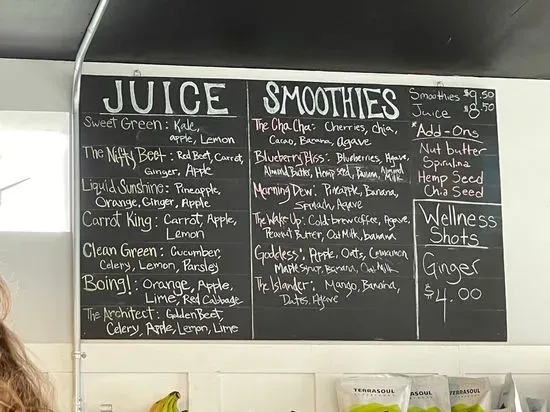 JUICE
Sweet Green: Kale,
apple, Lemon
The Nifty Beet: Red Beet, Carrot,
Ginger, Apple
Liquid Sunshine: Pineapple,
Orange, Ginger, Apple
Carrot King: Carrot, Apple,
Lemon
Clean Green: Cucumber,
Celery, Lemon, Parsley
Boing!: Orange, Apple,
Lime, Red Cabbage
The Architect: Golden Beet,
Celery, Apple, Lemon, Lime
SMOOTHIES
The Cha Cha: Cherries, Chia,
Cacao, Banana, Agave
Blueberry Bliss: Blueberries, Agave,
Almond Butter, Hemp Seed, Banana, Almond Milk
Morning Dew: Pineapple, Banana,
Spinach, Agave
The Wake Up: Cold-brew coffee, Agave,
Peanut Butter, Oat Milk, banana
Goddess: Apple, Oats, Cinnamon
Maple Syrup, Banana, Oat Milk
The Islander: Mango, Banana,
Dates, Agave
Smoothies $9.50
Juice $8.50
*Add-Ons
Nut butter
Spirulina
Hemp Seed
Chia Seed
Wellness
Shots
Ginger
$4.00
TERRASOUL
TERRASOUL
TERRASOUL